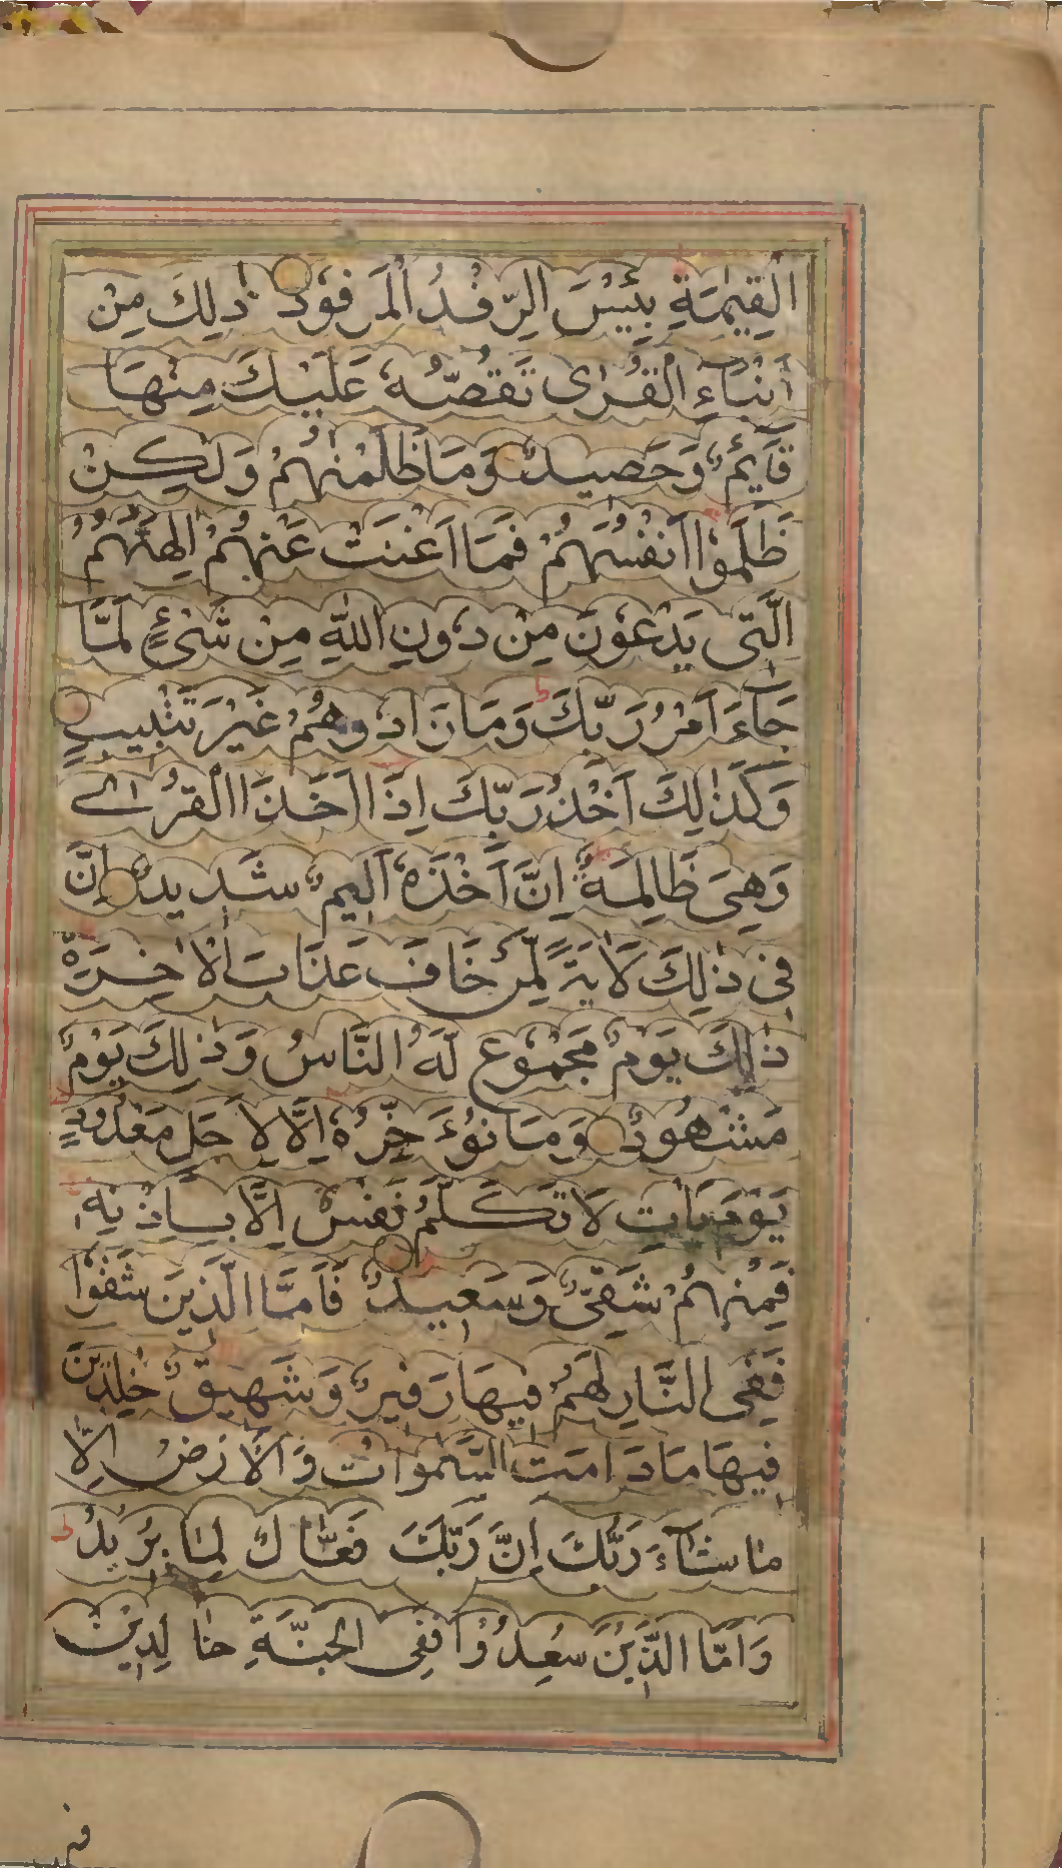 الْقِيٰمَةِ بِئْسَ الرِّفْدُ الْمَرْفُوْدُ ذٰلِكَ مِنْ
اَنْبَآءِ الْقُرٰى نَقُصُّهٗ عَلَيْكَ مِنْهَا
قَآئِمٌ وَحَصِيْدٌ وَمَا ظَلَمْنٰهُمْ وَلٰكِنْ
ظَلَمُوْا اَنْفُسَهُمْ فَمَا اَغْنَتْ عَنْهُمْ اٰلِهَتُهُمُ
الَّتِى يَدْعُوْنَ مِنْ دُوْنِ اللّٰهِ مِنْ شَىْءٍ لَمَّا
جَآءَ اَمْرُ رَبِّكَ وَمَا زَادُوْهُمْ غَيْرَ تَتْبِيْبٍ
وَكَذٰلِكَ اَخْذُ رَبِّكَ اِذَا اَخَذَ الْقُرٰى
وَهِىَ ظَالِمَةٌ اِنَّ اَخْذَهٗ اَلِيْمٌ شَدِيْدٌ اِنَّ
فِى ذٰلِكَ لَاٰيَةً لِّمَنْ خَافَ عَذَابَ الْاٰخِرَةِ
ذٰلِكَ يَوْمٌ مَجْمُوْعٌ لَهُ النَّاسُ وَذٰلِكَ يَوْمٌ
مَشْهُوْدٌ وَمَا نُؤَخِّرُهٗ اِلَّا لِاَجَلٍ مَعْدُوْدٍ
يَوْمَ يَاْتِ لَا تَكَلَّمُ نَفْسٌ اِلَّا بِاِذْنِهٖ
فَمِنْهُمْ شَقِىٌّ وَسَعِيْدٌ فَاَمَّا الَّذِيْنَ شَقُوْا
فَفِى النَّارِ لَهُمْ فِيْهَا زَفِيْرٌ وَشَهِيْقٌ خٰلِدِيْنَ
فِيْهَا مَا دَامَتِ السَّمٰوَاتُ وَالْاَرْضُ اِلَّا
مَا شَآءَ رَبُّكَ اِنَّ رَبَّكَ فَعَّالٌ لِمَا يُرِيْدُ
وَاَمَّا الَّذِيْنَ سُعِدُوْا فَفِى الْجَنَّةِ خَالِدِيْنَ